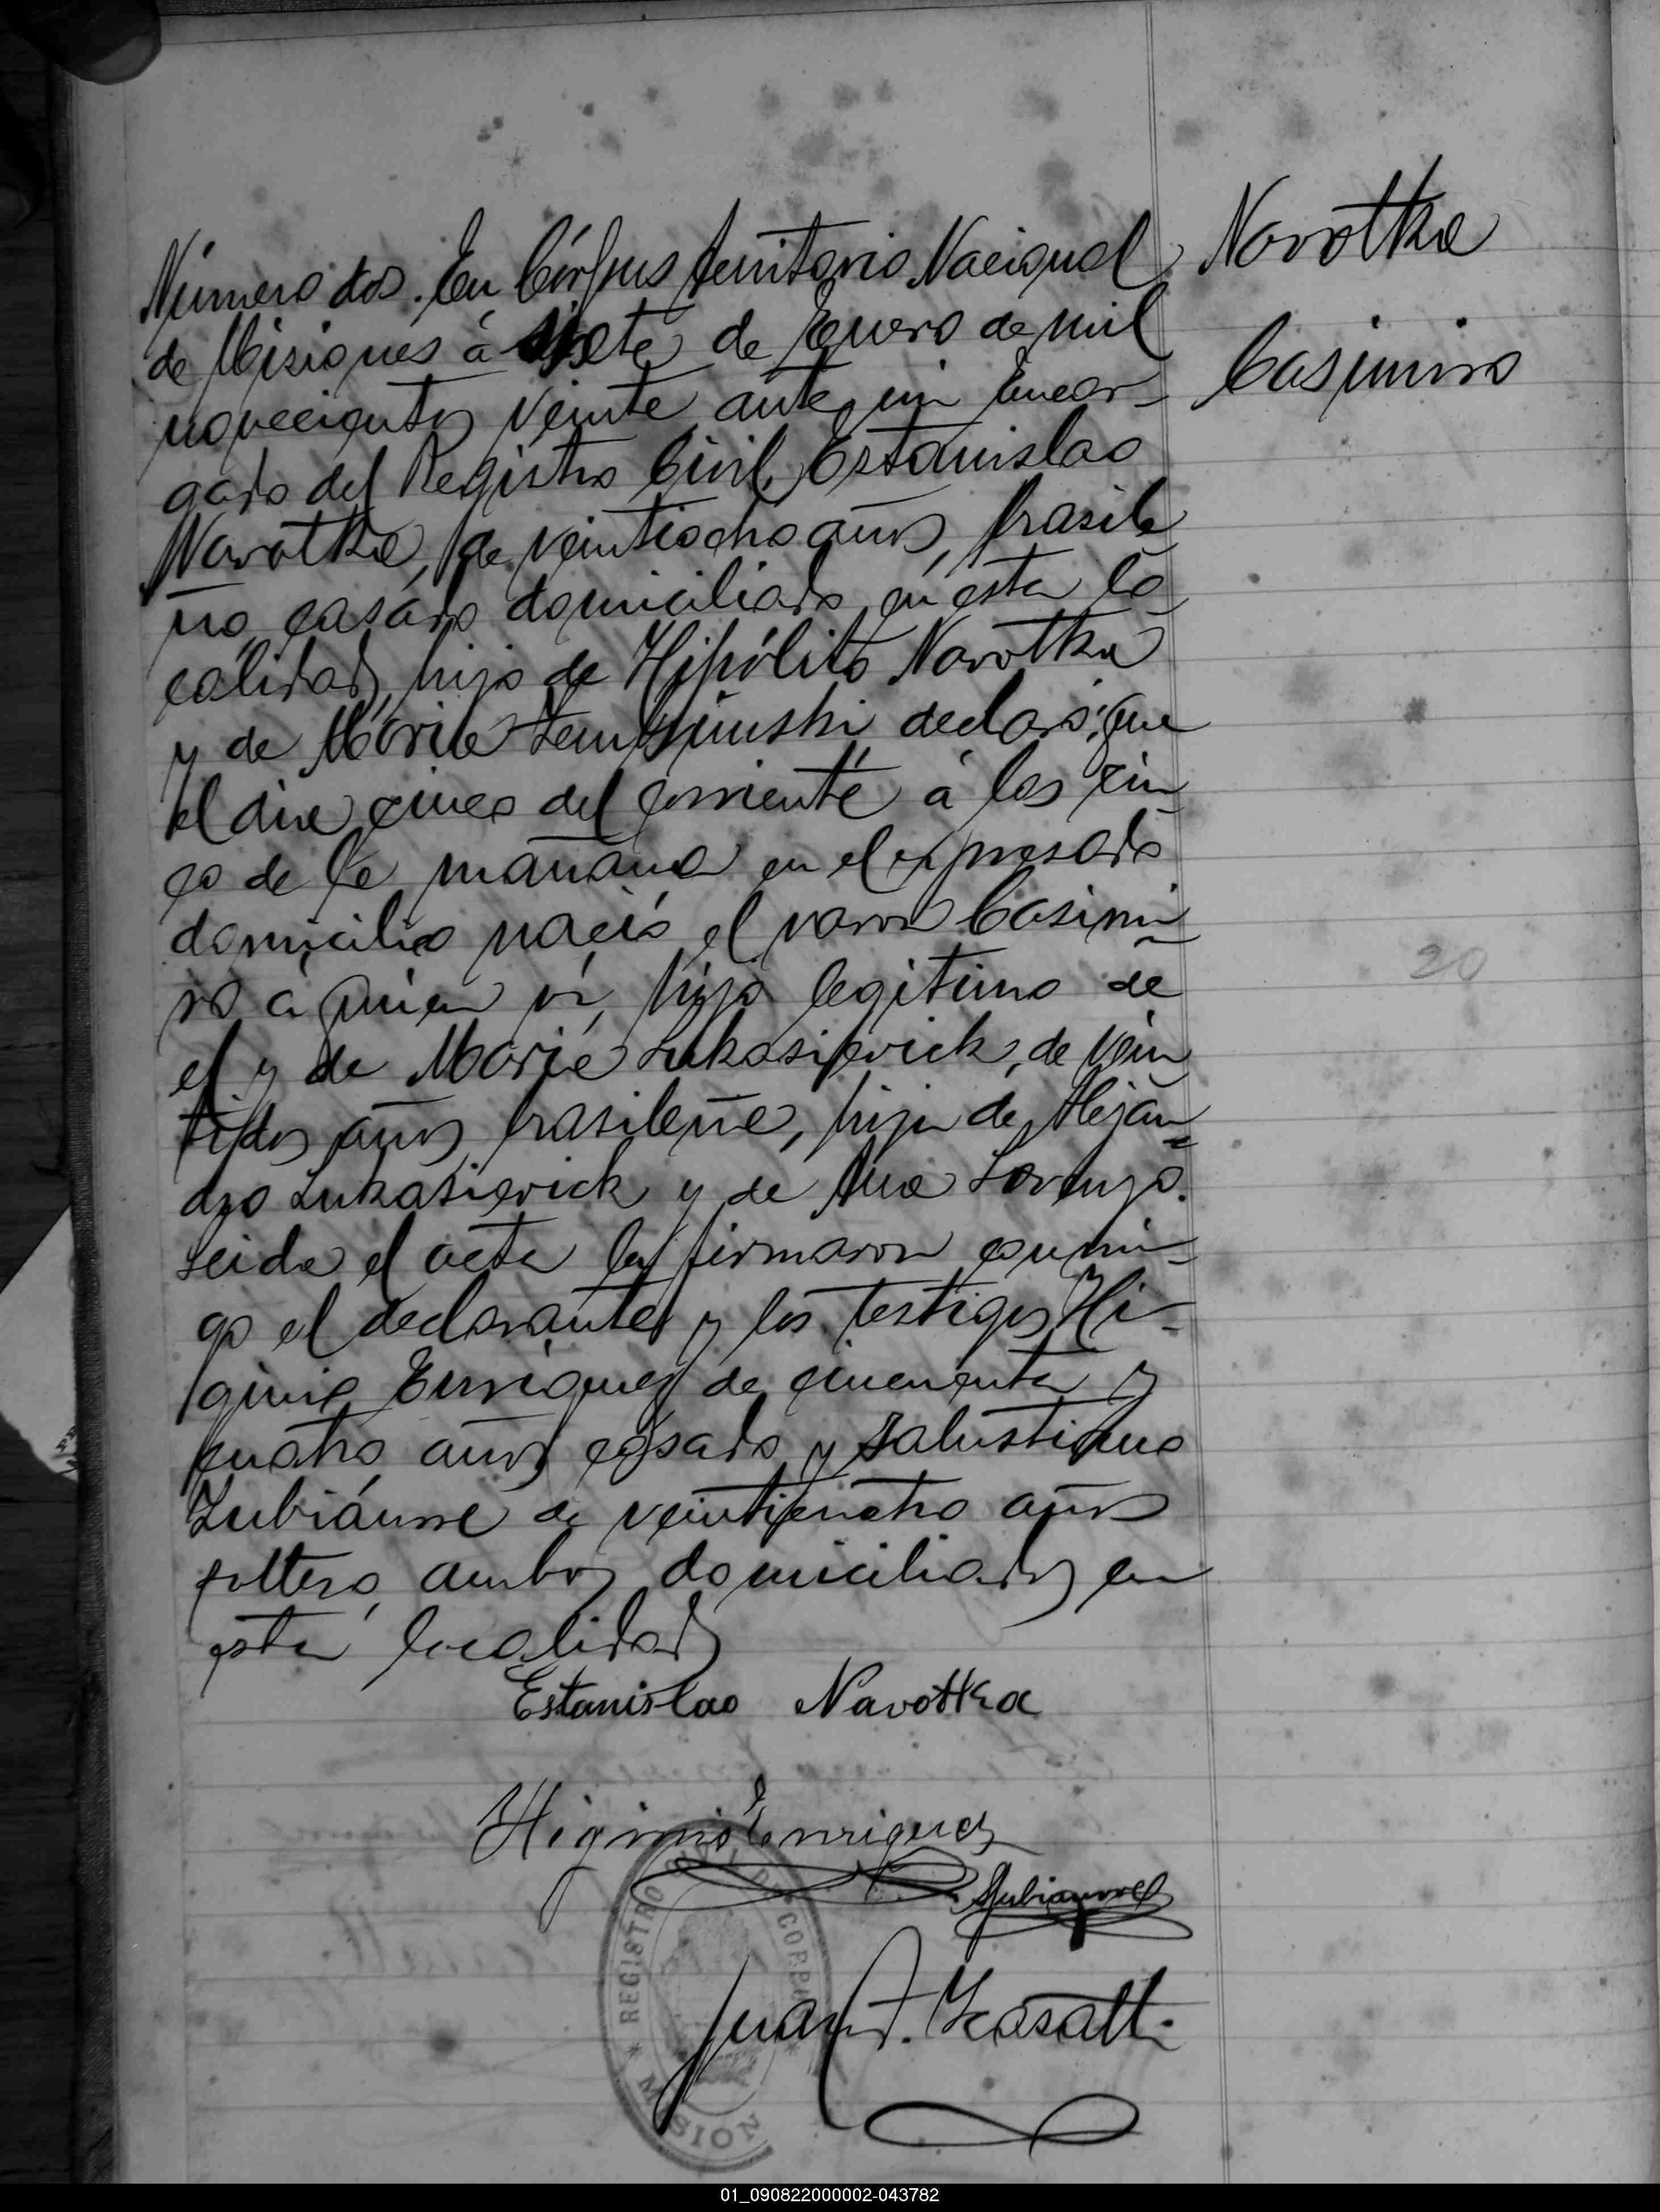 Navotka
Casimiro
Número dos. En Córpus territorio Nacional
de Misiones á siete de Enero de mil
novecientos veinte, ante mi Encar-
gado del Registro Civil, Estanislao
Navotka, de veintiocho años, brasile
ño, casado domiciliado en esta lo-
calidad, hijo de Hipólito Navotka
y de María declaró: Que
el dia cinco del corriente á las cin-
co de la mañana en el expresado
domicilio nació el varon Casimi-
ro á quien ví, hijo legitimo de
el y de María Lukasievick, de vein
tidos años brasileña, hija de Aleján-
dro Lukasievick y de Ana
Leida el acta la firmaron conmi-
go el declarante y los testigos Hi-
ginio Enriquez de cincuenta y
cuatro años casado y Salustiano
Lubiaurre de veinticuatro años
soltero, ambos domiciliados en
esta localidad
Estanislao Navotka
Higinio Enriquez
SLubiaurre
Juan F.
* REGISTRO CIVIL DE CORPUS *
MISIONES
20
01_090822000002-043782